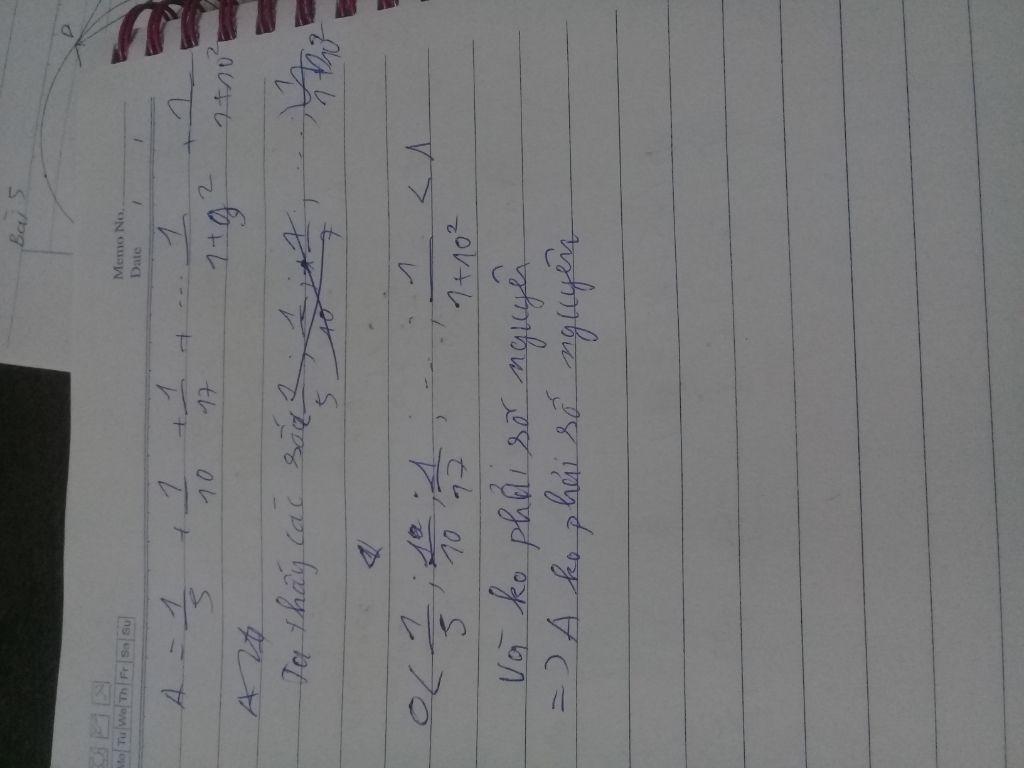 Bài 5
Memo No.
Date
Mo Tu We Th Fr Sa Su
A = 1/5 + 1/10 + 1/17 + ... 1/1+9² + 1/1+10²
A
Ta thấy các số
0 < 1/5 ; 1/10 ; 1/17 ; ... ; 1/1+10² < 1
Và ko phải số nguyên
=> A ko phải số nguyên